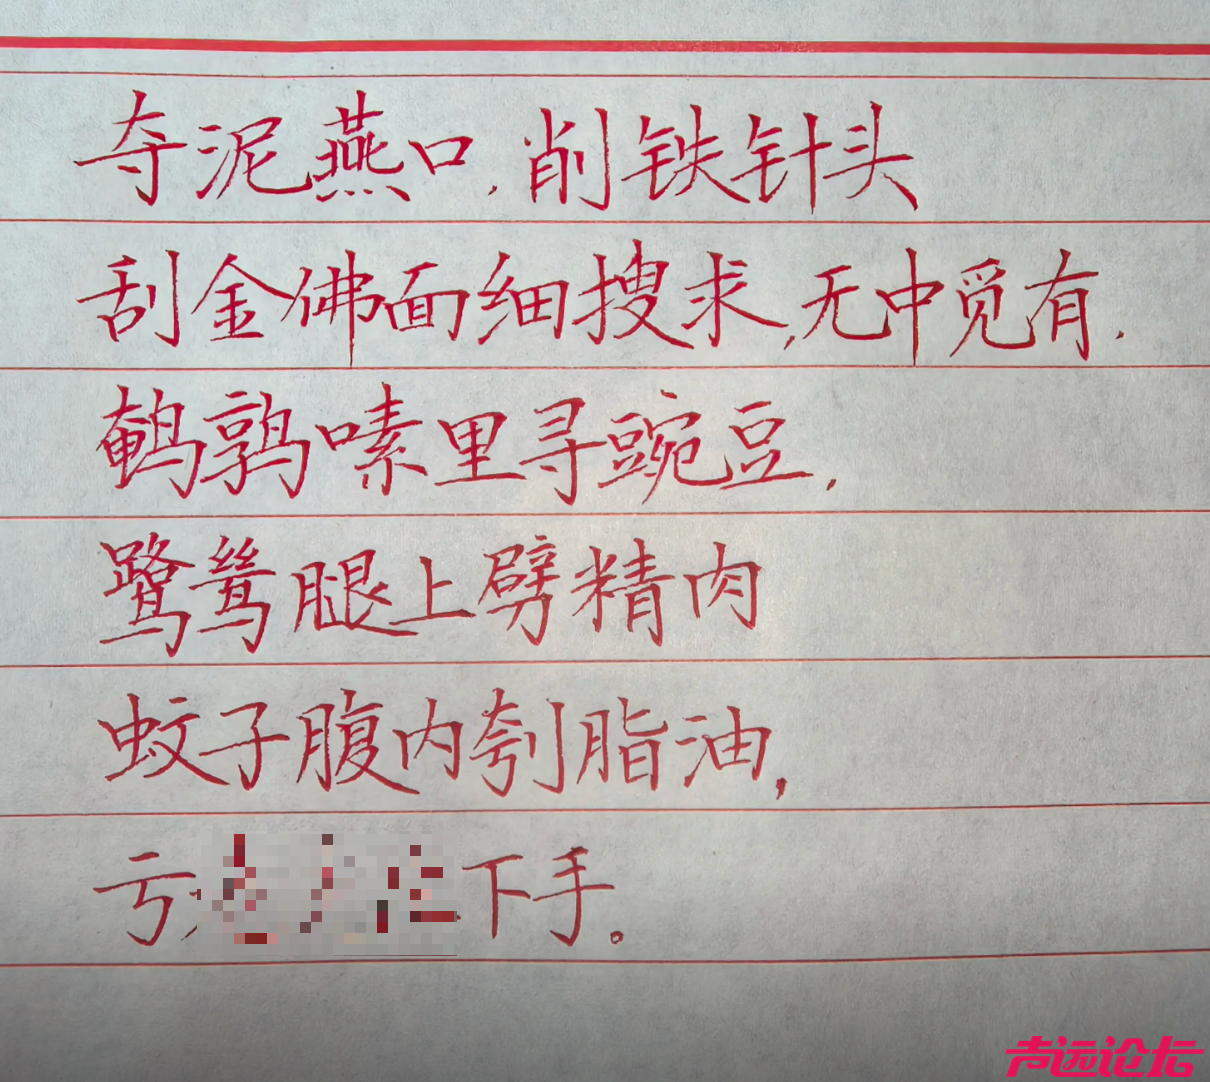 夺泥燕口,削铁针头
刮金佛面细搜求,无中觅有.
鹌鹑嗉里寻豌豆,
鹭鸶腿上劈精肉
蚊子腹内刳脂油,
亏 下手。
声远论坛